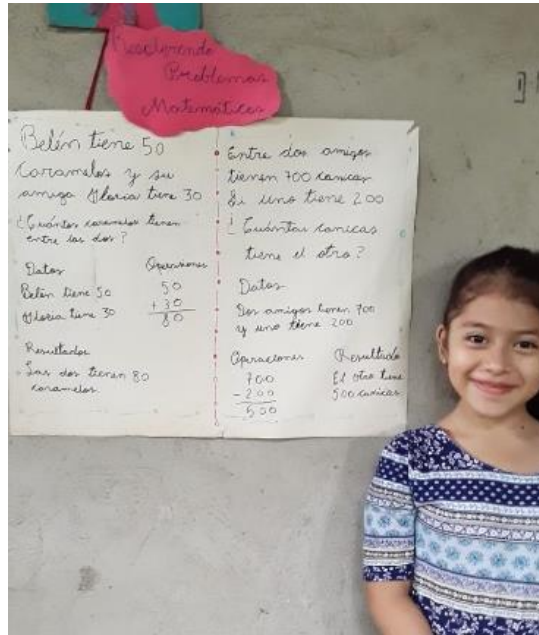 Resolviendo
Problemas
Matemáticos
Belén tiene 50
caramelos y su
amiga Gloria tiene 30
¿Cuántos caramelos tienen
entre las dos?
Datos
Operaciones
Belén tiene 50
Gloria tiene 30
50
+ 30
80
Resultados
Las dos tienen 80
caramelos.
Entre dos amigos
tienen 700 canicas
Si uno tiene 200
¿Cuántas canicas
tiene el otro?
Datos
Dos amigos tienen 700
y uno tiene 200
Operaciones
Resultado
700
- 200
500
El otro tiene
500 canicas